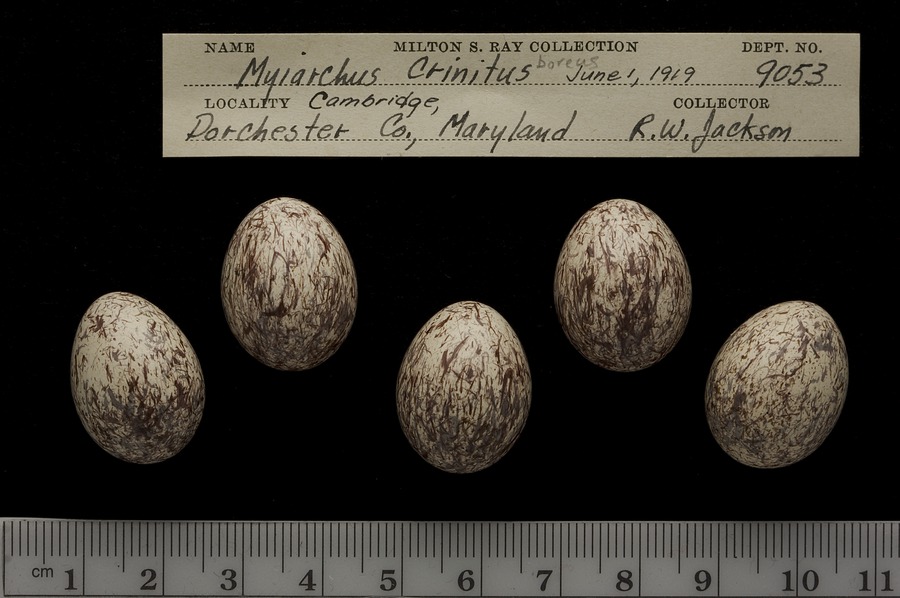 NAME MILTON S. RAY COLLECTION DEPT. NO.
Myiarchus Crinitus boreus June 1, 1919 9053
LOCALITY Cambridge, COLLECTOR
Dorchester Co., Maryland R.W. Jackson
cm 1 2 3 4 5 6 7 8 9 10 11